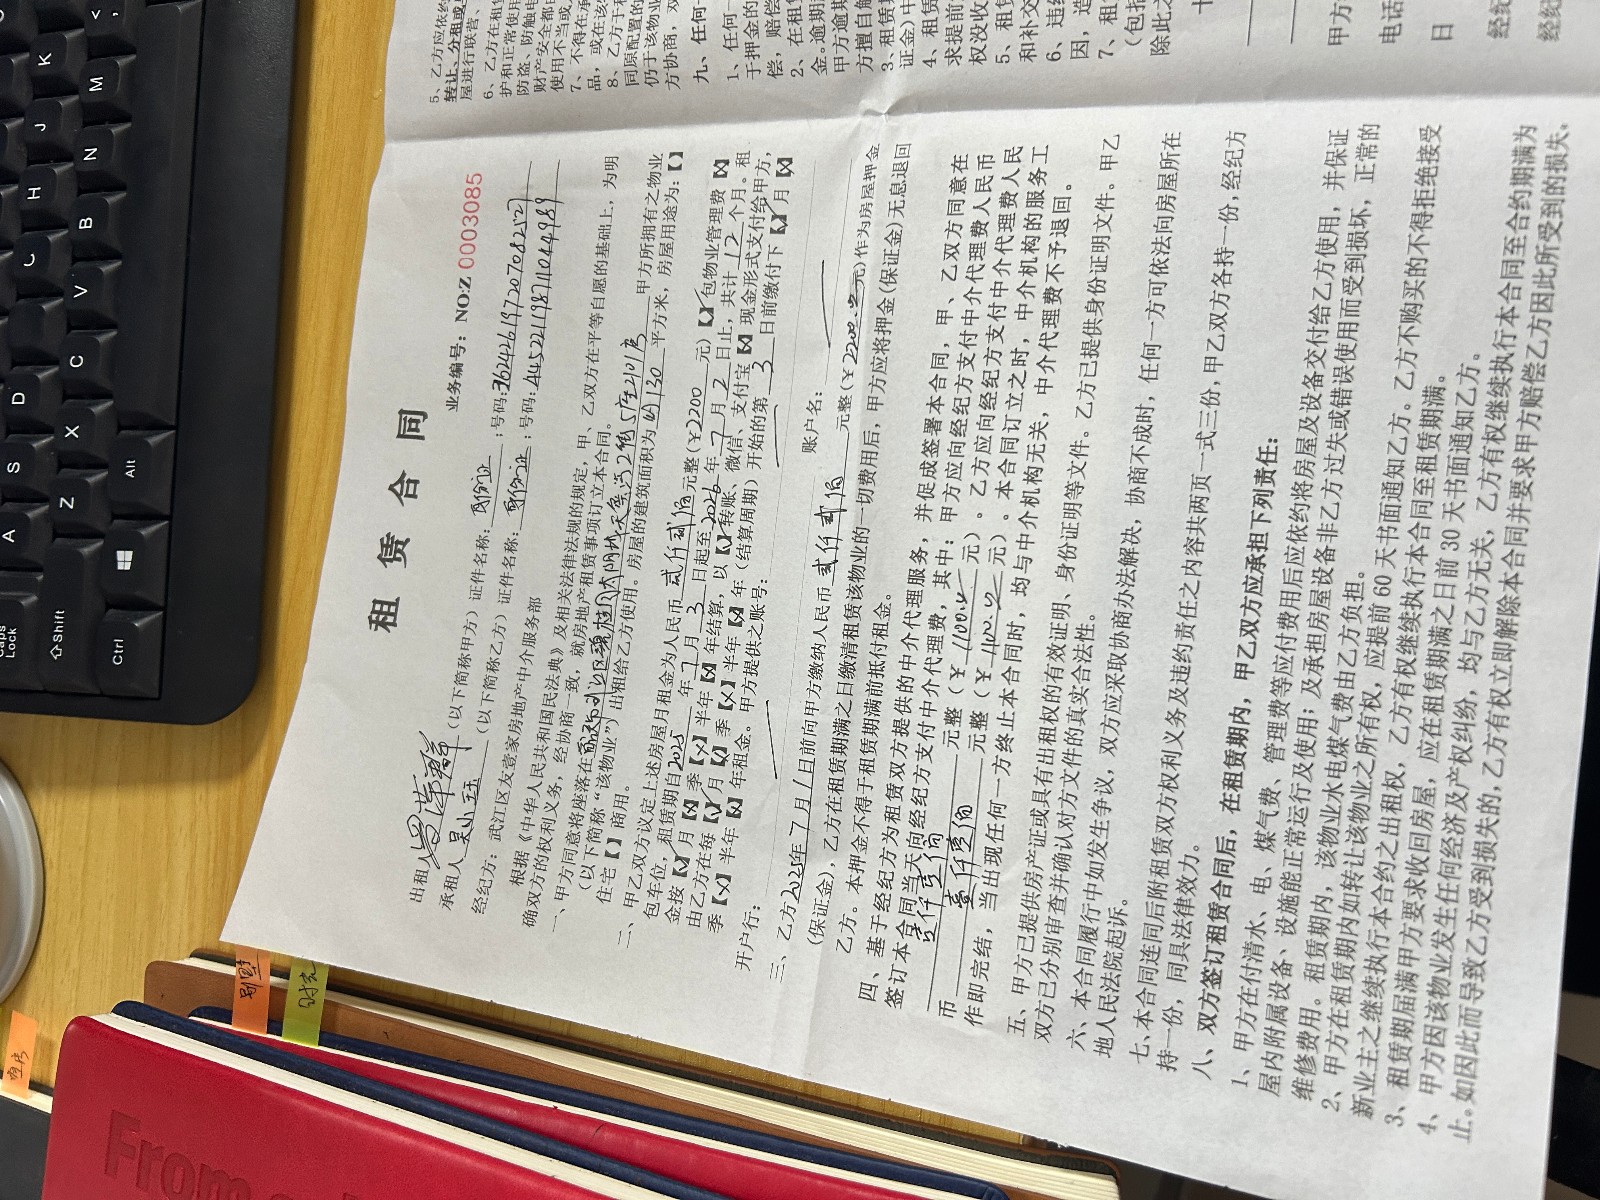 租 赁 合 同
业务编号：NO:Z 0003085
出租人 （以下简称甲方）证件名称：身份证；号码：362426197207082127
承租人 （以下简称乙方）证件名称：身份证；号码：445221198711044989
经纪方：武江区友壹家房地产中介服务部
根据《中华人民共和国民法典》及相关法律法规的规定，甲、乙双方在平等自愿的基础上，为明
确双方的权利义务，经协商一致，就房地产租赁事项订立本合同。
一、甲方同意将座落在 甲方所拥有之物业
（以下简称“该物业”）出租给乙方使用。房屋的建筑面积为 约130 平方米，房屋用途为：【 】
住宅【 】商用。
二、甲乙双方议定上述房屋月租金为人民币 贰仟贰佰 元整（¥2200 元）【√】包物业管理费【×】
包车位，租赁期自2025 年 7 月 3 日起至 2026 年 7 月 2 日止，共计 12 个月。租
金按【√】月【×】季【×】半年【×】年结算，以【√】转账、微信、支付宝【×】现金形式支付给甲方，
由乙方在每【√】月【×】季【×】半年【×】年（结算周期）开始的第 3 日前缴付下【√】月【×】
季【×】半年【×】年租金。甲方提供之账号：
开户行： 账户名：
三、乙方2025年 7 月 1 日前向甲方缴纳人民币 贰仟贰佰 元整（¥2200. 元）作为房屋押金
（保证金），乙方在租赁期满之日缴清租赁该物业的一切费用后，甲方应将押金（保证金）无息退回
乙方。本押金不得于租赁期满前抵付租金。
四、基于经纪方为租赁双方提供的中介代理服务，并促成签署本合同，甲、乙双方同意在
签订本合同当天向经纪方支付中介代理费，其中：甲方应向经纪方支付中介代理费人民币
壹仟壹佰 元整（¥ 1100. 元）。乙方应向经纪方支付中介代理费人民
币 壹仟壹佰 元整（¥ 1100. 元）。本合同订立之时，中介机构的服务工
作即完结，当出现任何一方终止本合同时，均与中介机构无关，中介代理费不予退回。
五、甲方已提供房产证或具有出租权的有效证明、身份证明等文件。乙方已提供身份证明文件。甲乙
双方已分别审查并确认对方文件的真实合法性。
六、本合同履行中如发生争议，双方应采取协商办法解决，协商不成时，任何一方可依法向房屋所在
地人民法院起诉。
七、本合同连同后附租赁双方权利义务及违约责任之内容共两页一式三份，甲乙双方各持一份，经纪方
持一份，同具法律效力。
八、双方签订租赁合同后，在租赁期内，甲乙双方应承担下列责任：
1、甲方在付清水、电、煤气费、管理费等应付费用后应依约将房屋及设备交付给乙方使用，并保证
屋内附属设备、设施能正常运行及使用；及承担房屋设备非乙方过失或错误使用而受到损坏，正常的
维修费用。租赁期内，该物业水电煤气费由乙方负担。
2、甲方在租赁期内如转让该物业之所有权，应提前 60 天书面通知乙方。乙方不购买的不得拒绝接受
新业主之继续执行本合约之出租权，乙方有权继续执行本合同至租赁期满。
3、租赁期届满甲方要求收回房屋，应在租赁期满之日前 30 天书面通知乙方。
4、甲方因该物业发生任何经济及产权纠纷，均与乙方无关，乙方有权继续执行本合同至合约期满为
止。如因此而导致乙方受到损失的，乙方有权立即解除本合同并要求甲方赔偿乙方因此所受到的损失。
5、乙方应依约
转让、分租或
屋进行联营、
6、乙方在租赁
护和正常使用
防盗、防触电
财产安全都由
使用不当或
7、不得在承
品，或在该
8、乙方于利
同原配置的
仍于该物业
方协商，双
九、任何一
1、任何一
于押金的
偿，赔偿
2、在租
金。逾期
甲方逾期
方擅自解
3、租赁
证金）中
4、租赁
求提前
权没收
5、租赁
和补交
6、违约
因，造
7、租
（包括
除此之
十
甲方
电话
日
经纪
经纪
Caps Lock
A
S
D
H
J
K
Shift
Z
X
C
V
B
N
M
Ctrl
Alt
From